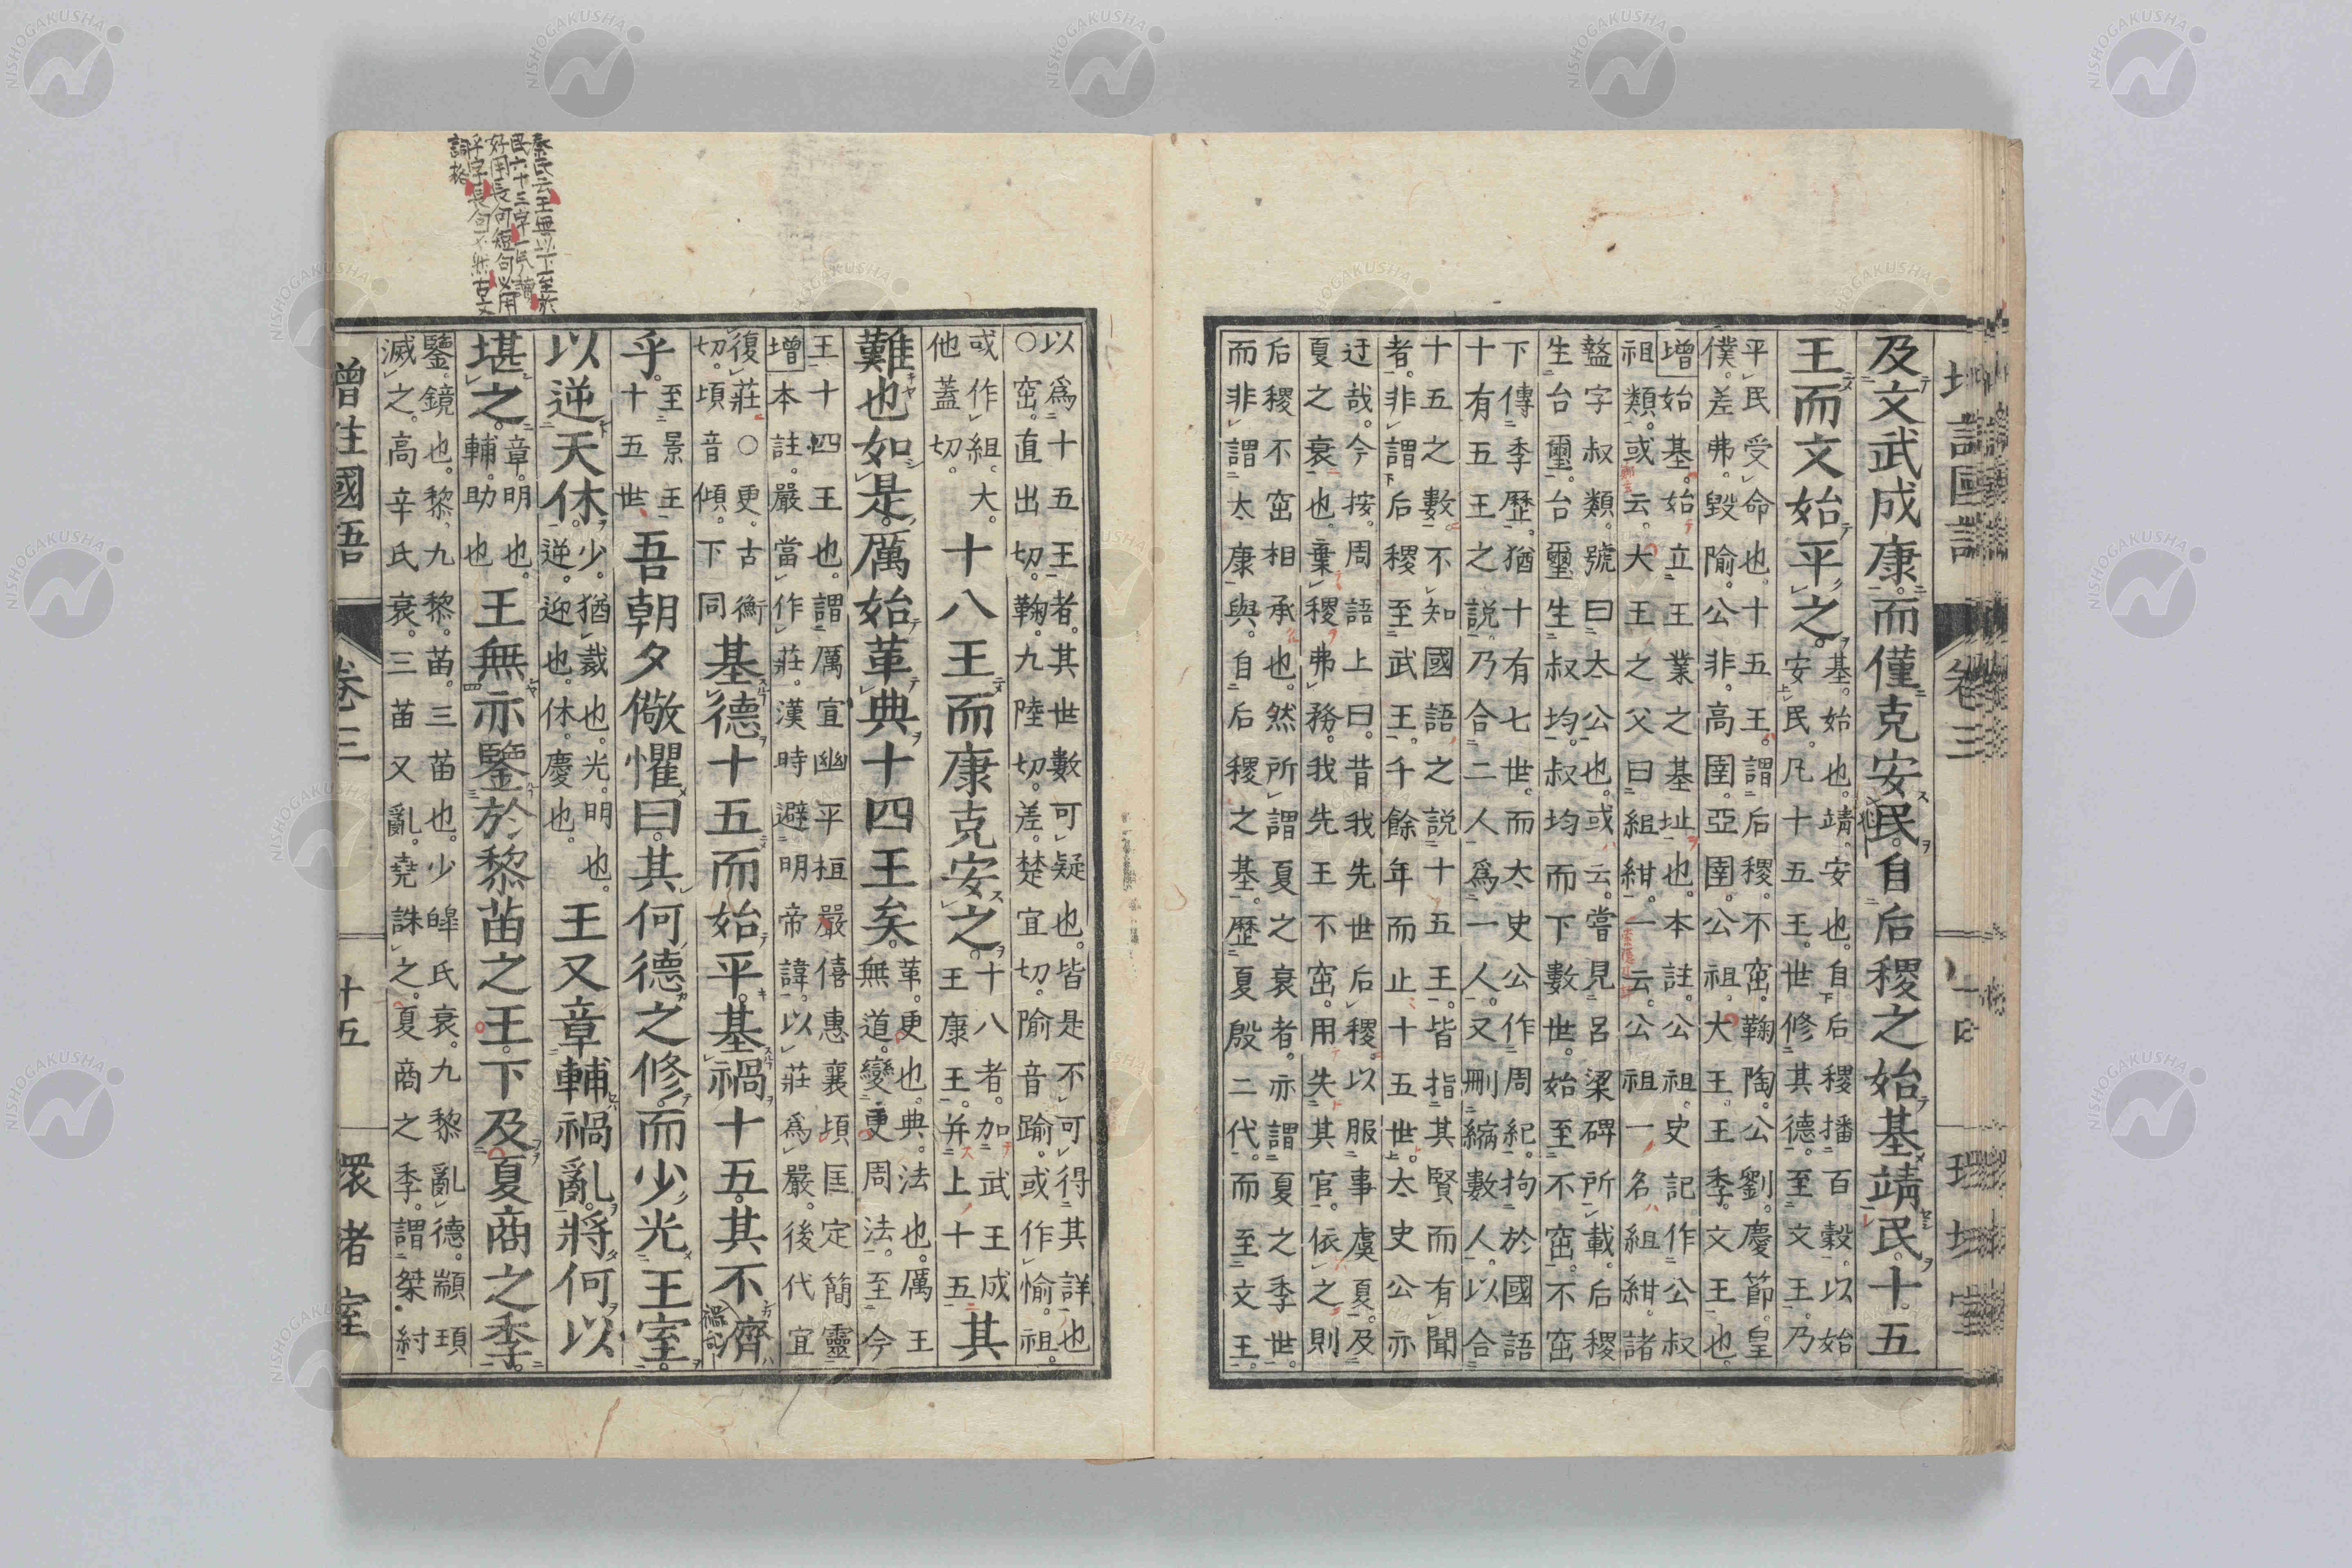 及文武成康而僅克安民自后稷之始基靖民十五
王而文始平之。
基。始也。靖。安也。自后稷播百穀以始
安民。凡十五王。世修其德。至文王乃
平民受命也。十五王。謂后稷。不窋。鞠陶。公劉。慶節。皇
僕。差弗。毀隃。公非。高圉。亞圉。公祖。大王。王季。文王也。
增始基。始立王業之基址也。本註公祖。史記作公叔
祖類。或云。大王之父曰組紺。一云。公祖一名組紺諸
盩字叔類。號曰太公也。或云。嘗見呂梁碑所載。后稷
生台璽。台璽生叔均。叔均而下數世。始至不窋。不窋
下傳季歷。猶十有七世。而太史公作周紀。拘於國語
十有五王之説。乃合二人爲一人。又刪縮數人。以合
十五之數。不知國語之説十五王。皆指其賢而有聞
者。非謂后稷至武王。千餘年而止十五世。太史公亦
迂哉。今按。周語上曰。昔我先世后稷。以服事虞夏。及
夏之衰也。棄稷弗務。我先王不窋。用失其官。依之則
后稷不窋相承也。然所謂夏之衰者。亦謂夏之季世。
而非謂太康與。自后稷之基。歷夏殷二代。而至文王。
以爲十五王者。其世數可疑也。皆是不可得其詳也
○窋。直出切。鞠。九陸切。差。楚宜切。隃音踰。或作愉。祖。
或作組。大。
他蓋切。
十八王而康克安之。
十八者。加武王成
王康王。并上十五
其
難也如是。厲始革典十四王矣。
革。更也。典。法也。厲王
無道。變更周法。至今
王十四王也。謂厲宣幽平桓嚴僖惠襄頃匡定簡靈
增本註。嚴當作莊。漢時避明帝諱。以莊爲嚴。後代宜
復莊。○更。古衡
切。頃音傾。下同
基德十五而始平。基禍十五。其不濟
乎。
至景王
十五世
吾朝夕儆懼曰。其何德之修。而少光王室。
以逆天休。
少。猶裁也。光。明也。
逆。迎也。休。慶也。
王又章輔禍亂。將何以
堪之。
章。明也。
輔。助也
王無亦鑒於黎苗之王。下及夏商之季。
鑒。鏡也。黎。九黎。苗。三苗也。少皞氏衰。九黎亂德。顓頊
滅之。高辛氏衰。三苗又亂。堯誅之。夏商之季。謂桀紂
增注國語 卷三 十五 環堵室
秦氏云王無以下至於
民六十三字一氣讀
好用長句短句必用
乎字長句
古文
詞格